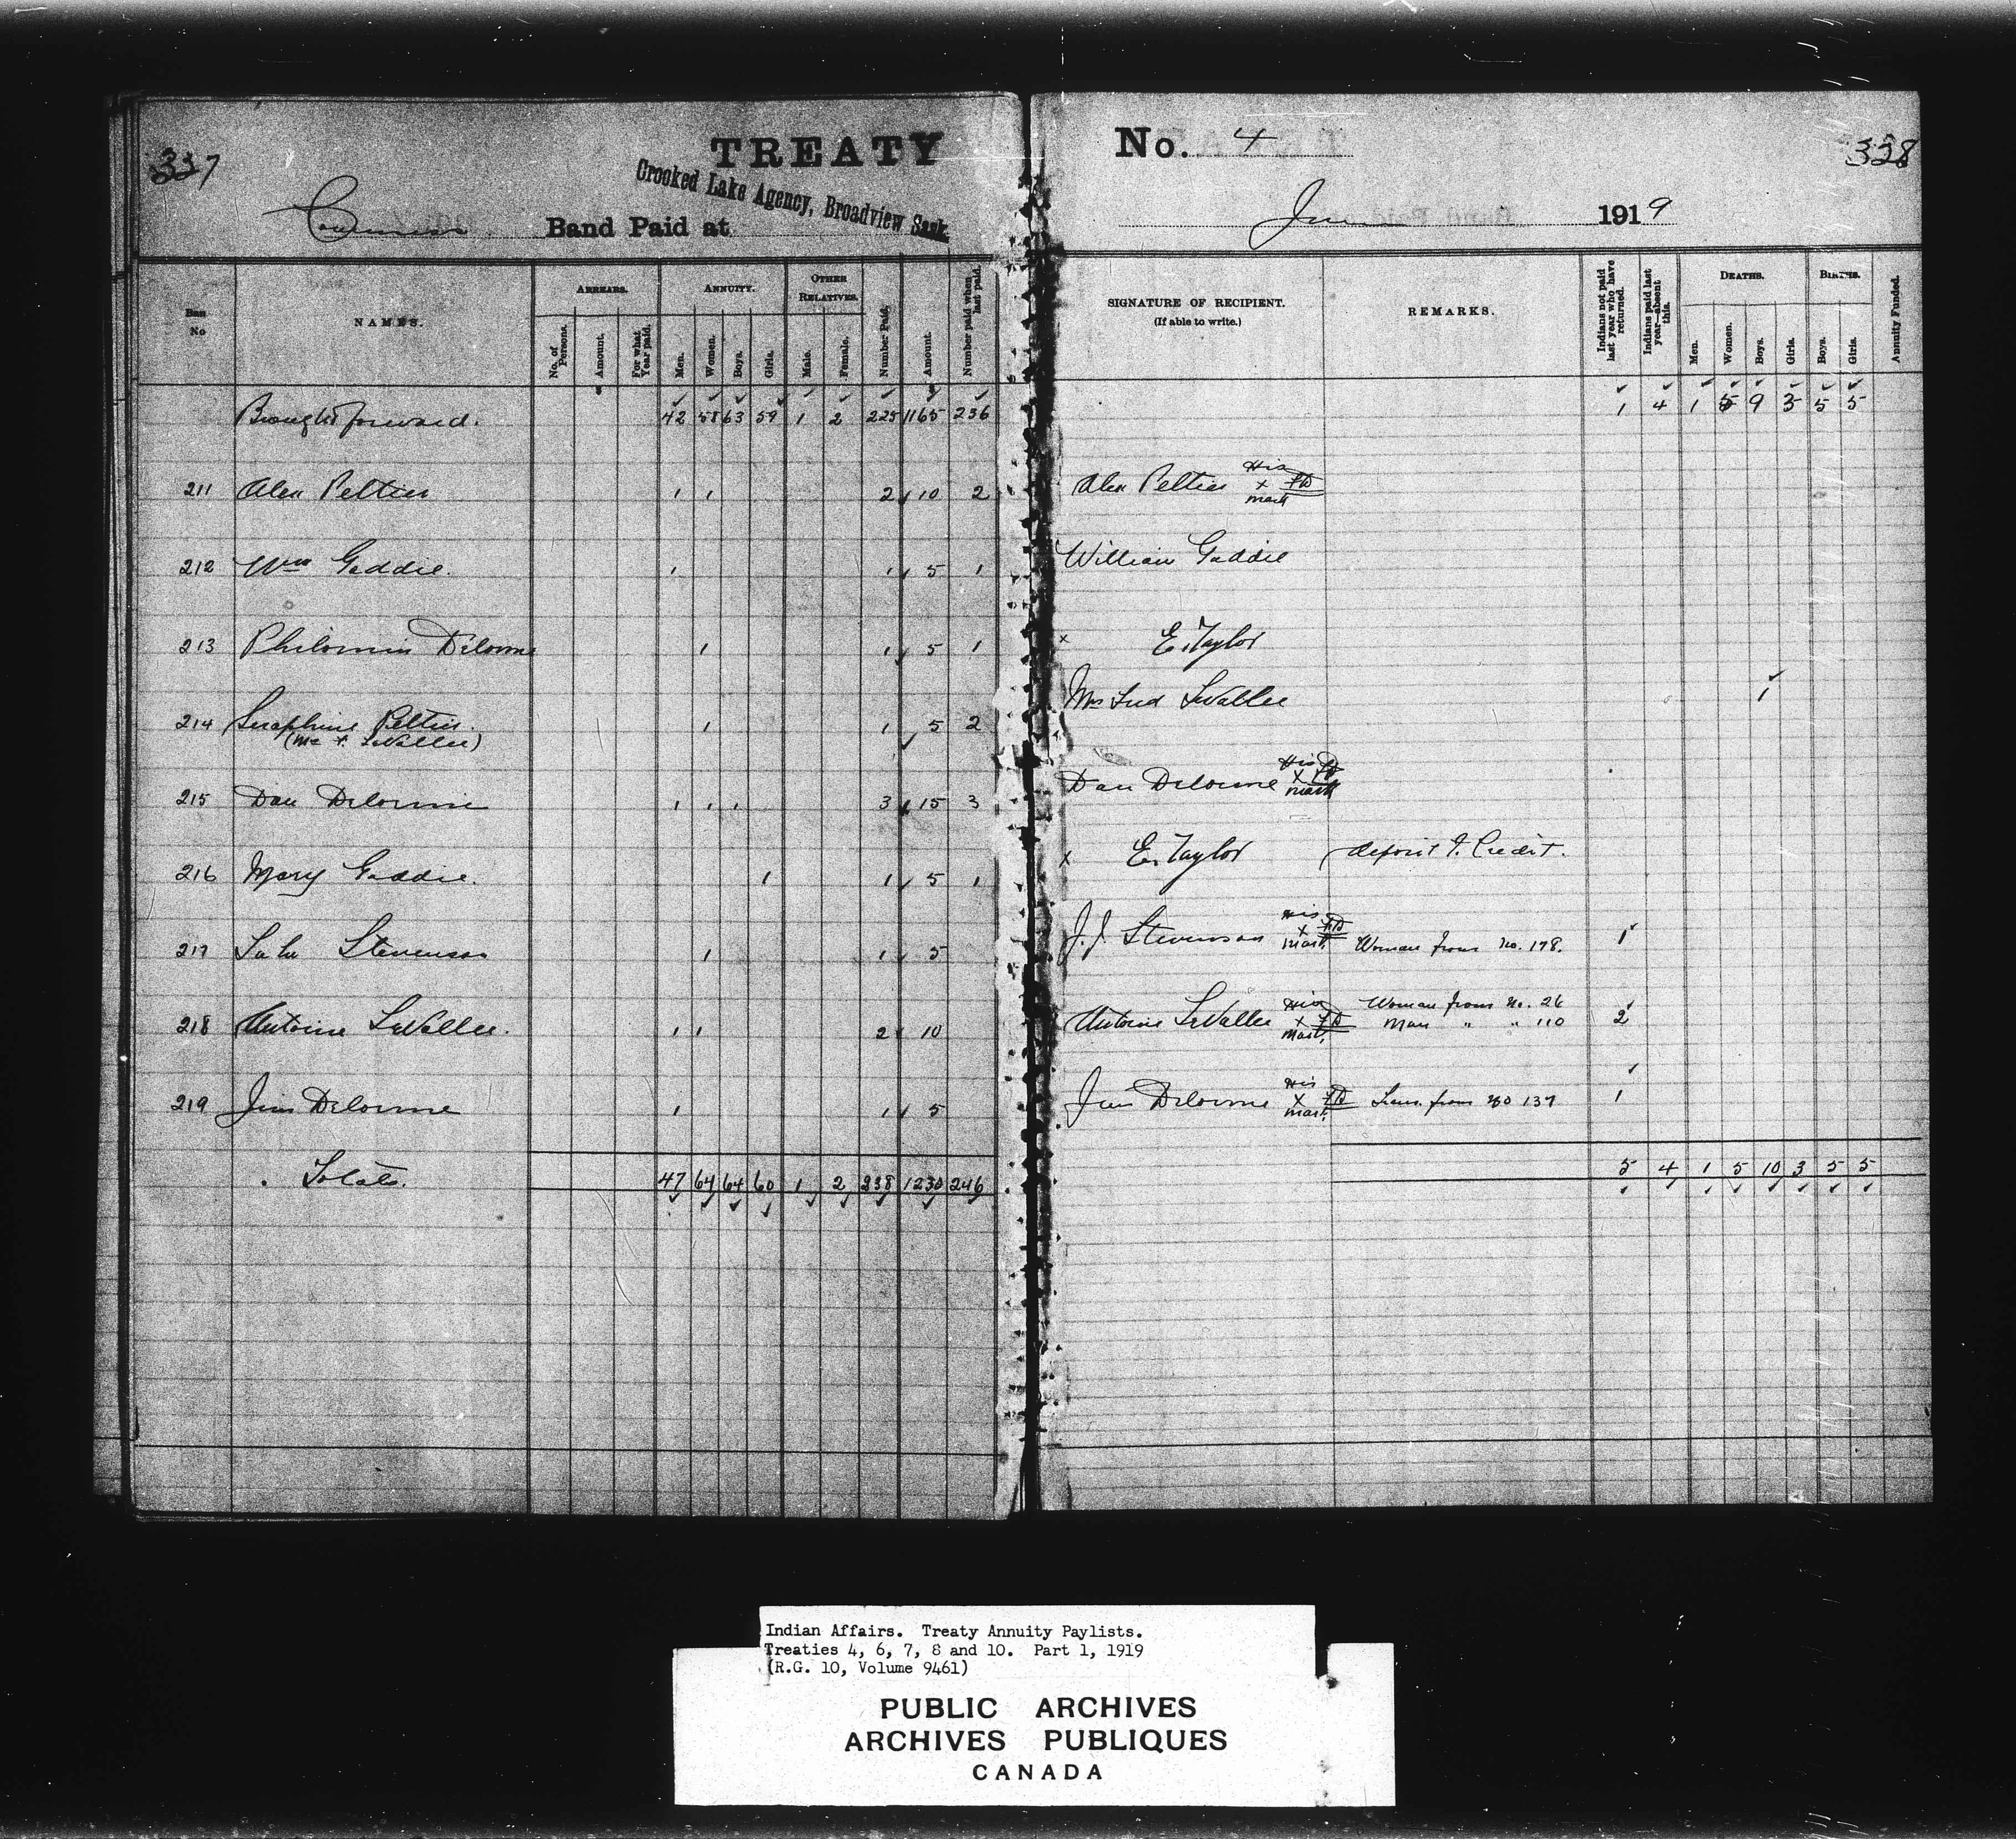 337
TREATY
Crooked Lake Agency, Broadview Sask.
Band Paid at
No. 4
338
June 1919
NAMES.
ARREARS.
No. of Persons.
Amount.
For what Year paid.
ANNUITY.
Men.
Women.
Boys.
Girls.
OTHER RELATIVES.
Male.
Female.
Number Paid.
Amount.
Number paid when last paid.
SIGNATURE OF RECIPIENT.
(If able to write.)
REMARKS.
Indians not paid last year who have returned.
Indians paid last year—absent this.
DEATHS.
Men.
Women.
Boys.
Girls.
BIRTHS.
Boys.
Girls.
Annuity Funded.
Brought forward. 42 58 63 59 1 2 225 1165 236 1 4 1 5 9 3 5 5
211 Alex Peltier 1 1 2 10 2 Alex Peltier His x mark
212 Wm Gaddie. 1 1 5 1 William Gaddie
213 Philomin Delorme 1 1 5 1 x E. Taylor
214 Seraphine Peltier. 1 1 5 2 Mrs LeVallee 1
215 Dan Delorme 1 1 1 3 15 3 Dan Delorme His x mark
216 Mary Gaddie. 1 1 5 1 x E. Taylor deposit Credit.
217 Stevenson 1 1 5 J.J. Stevenson His x mark Woman from No. 178. 1
218 Antoine LeVallee. 1 1 2 10 Antoine LeVallee His x mark Woman from No. 26
Man " " 110 2
219 Jim Delorme 1 1 5 Jim Delorme His x mark Trans. from No 137 1
Totals. 47 64 64 60 1 2 238 1230 246 5 4 1 5 10 3 5 5
Indian Affairs. Treaty Annuity Paylists.
Treaties 4, 6, 7, 8 and 10. Part 1, 1919
(R.G. 10, Volume 9461)
PUBLIC ARCHIVES
ARCHIVES PUBLIQUES
CANADA